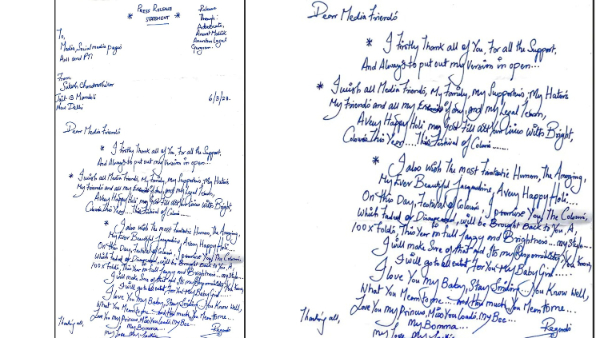 * PRESS RELEASE
STATEMENT *
Release
Through
Advocate,
Anant Malik
To,
Media, Social media pages
ANI and PTI
From
Sukesh Chandrashekar
Jail: 13 Mandoli
New Delhi
6/3/23.
Dear Media Friends
* I firstly Thank all of You, For all the Support,
And Always to put out my Version in open...
* I wish all Media Friends, My Family, My Supporters, My Haters
My Friends and all my Enemies if any, and my Legal Team,
A Very Happy Holi may God Fill all Your Lives With Bright,
Colours This Year.... This Festival of Colours...
* I also wish the most Fantastic Human, The Amazing,
My Ever Beautiful Jacqueline, A Very Happy Holi...
On this Day, Festival of Colours, I promise You, The Colours,
Which Faded or Disappeared, will be Brought Back to You. A
100X folds This Year in full and Brightness.... my style...
I will make Sure of that and its my Responsibility. You Know,
I will go to all extent For You My Baby Girl....
I Love You My Baby, Stay Smiling... You Know Well,
What You Mean to me.... and How much You Mean to me...
Love You my Princess, Miss You Loads, My Bee...
My Bomma...
my Love
Thanking all,
Dear Media Friends
* I firstly Thank all of You, For all the Support,
And Always to put out my Version in open...
* I wish all Media Friends, My Family, My Supporters, My Haters
My Friends and all my Enemies if any, and my Legal Team,
A Very Happy Holi may God Fill all Your Lives With Bright,
Colours This Year.... This Festival of Colours...
* I also wish the most Fantastic Human, The Amazing,
My Ever Beautiful Jacqueline, A Very Happy Holi...
On this Day, Festival of Colours, I promise You, The Colours,
Which Faded or Disappeared, will be Brought Back to You. A
100X folds This Year in full and Brightness.... my style...
I will make Sure of that and its my Responsibility. You Know,
I will go to all extent For You My Baby Girl....
I Love You My Baby, Stay Smiling... You Know Well,
What You Mean to me.... and How much You Mean to me...
Love You my Princess, Miss You Loads, My Bee...
My Bomma...
my Love
Thanking all,
Regards